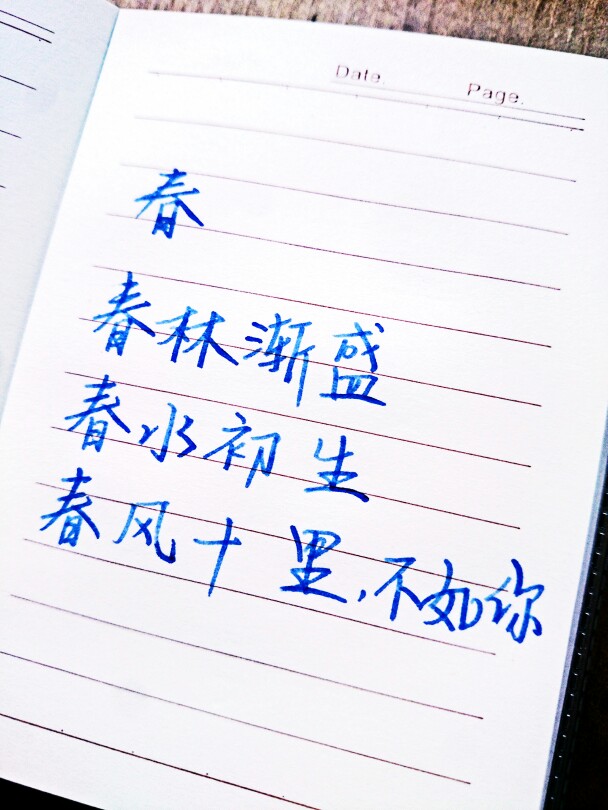 Date. Page.
春
春林渐盛
春水初生
春风十里,不如你